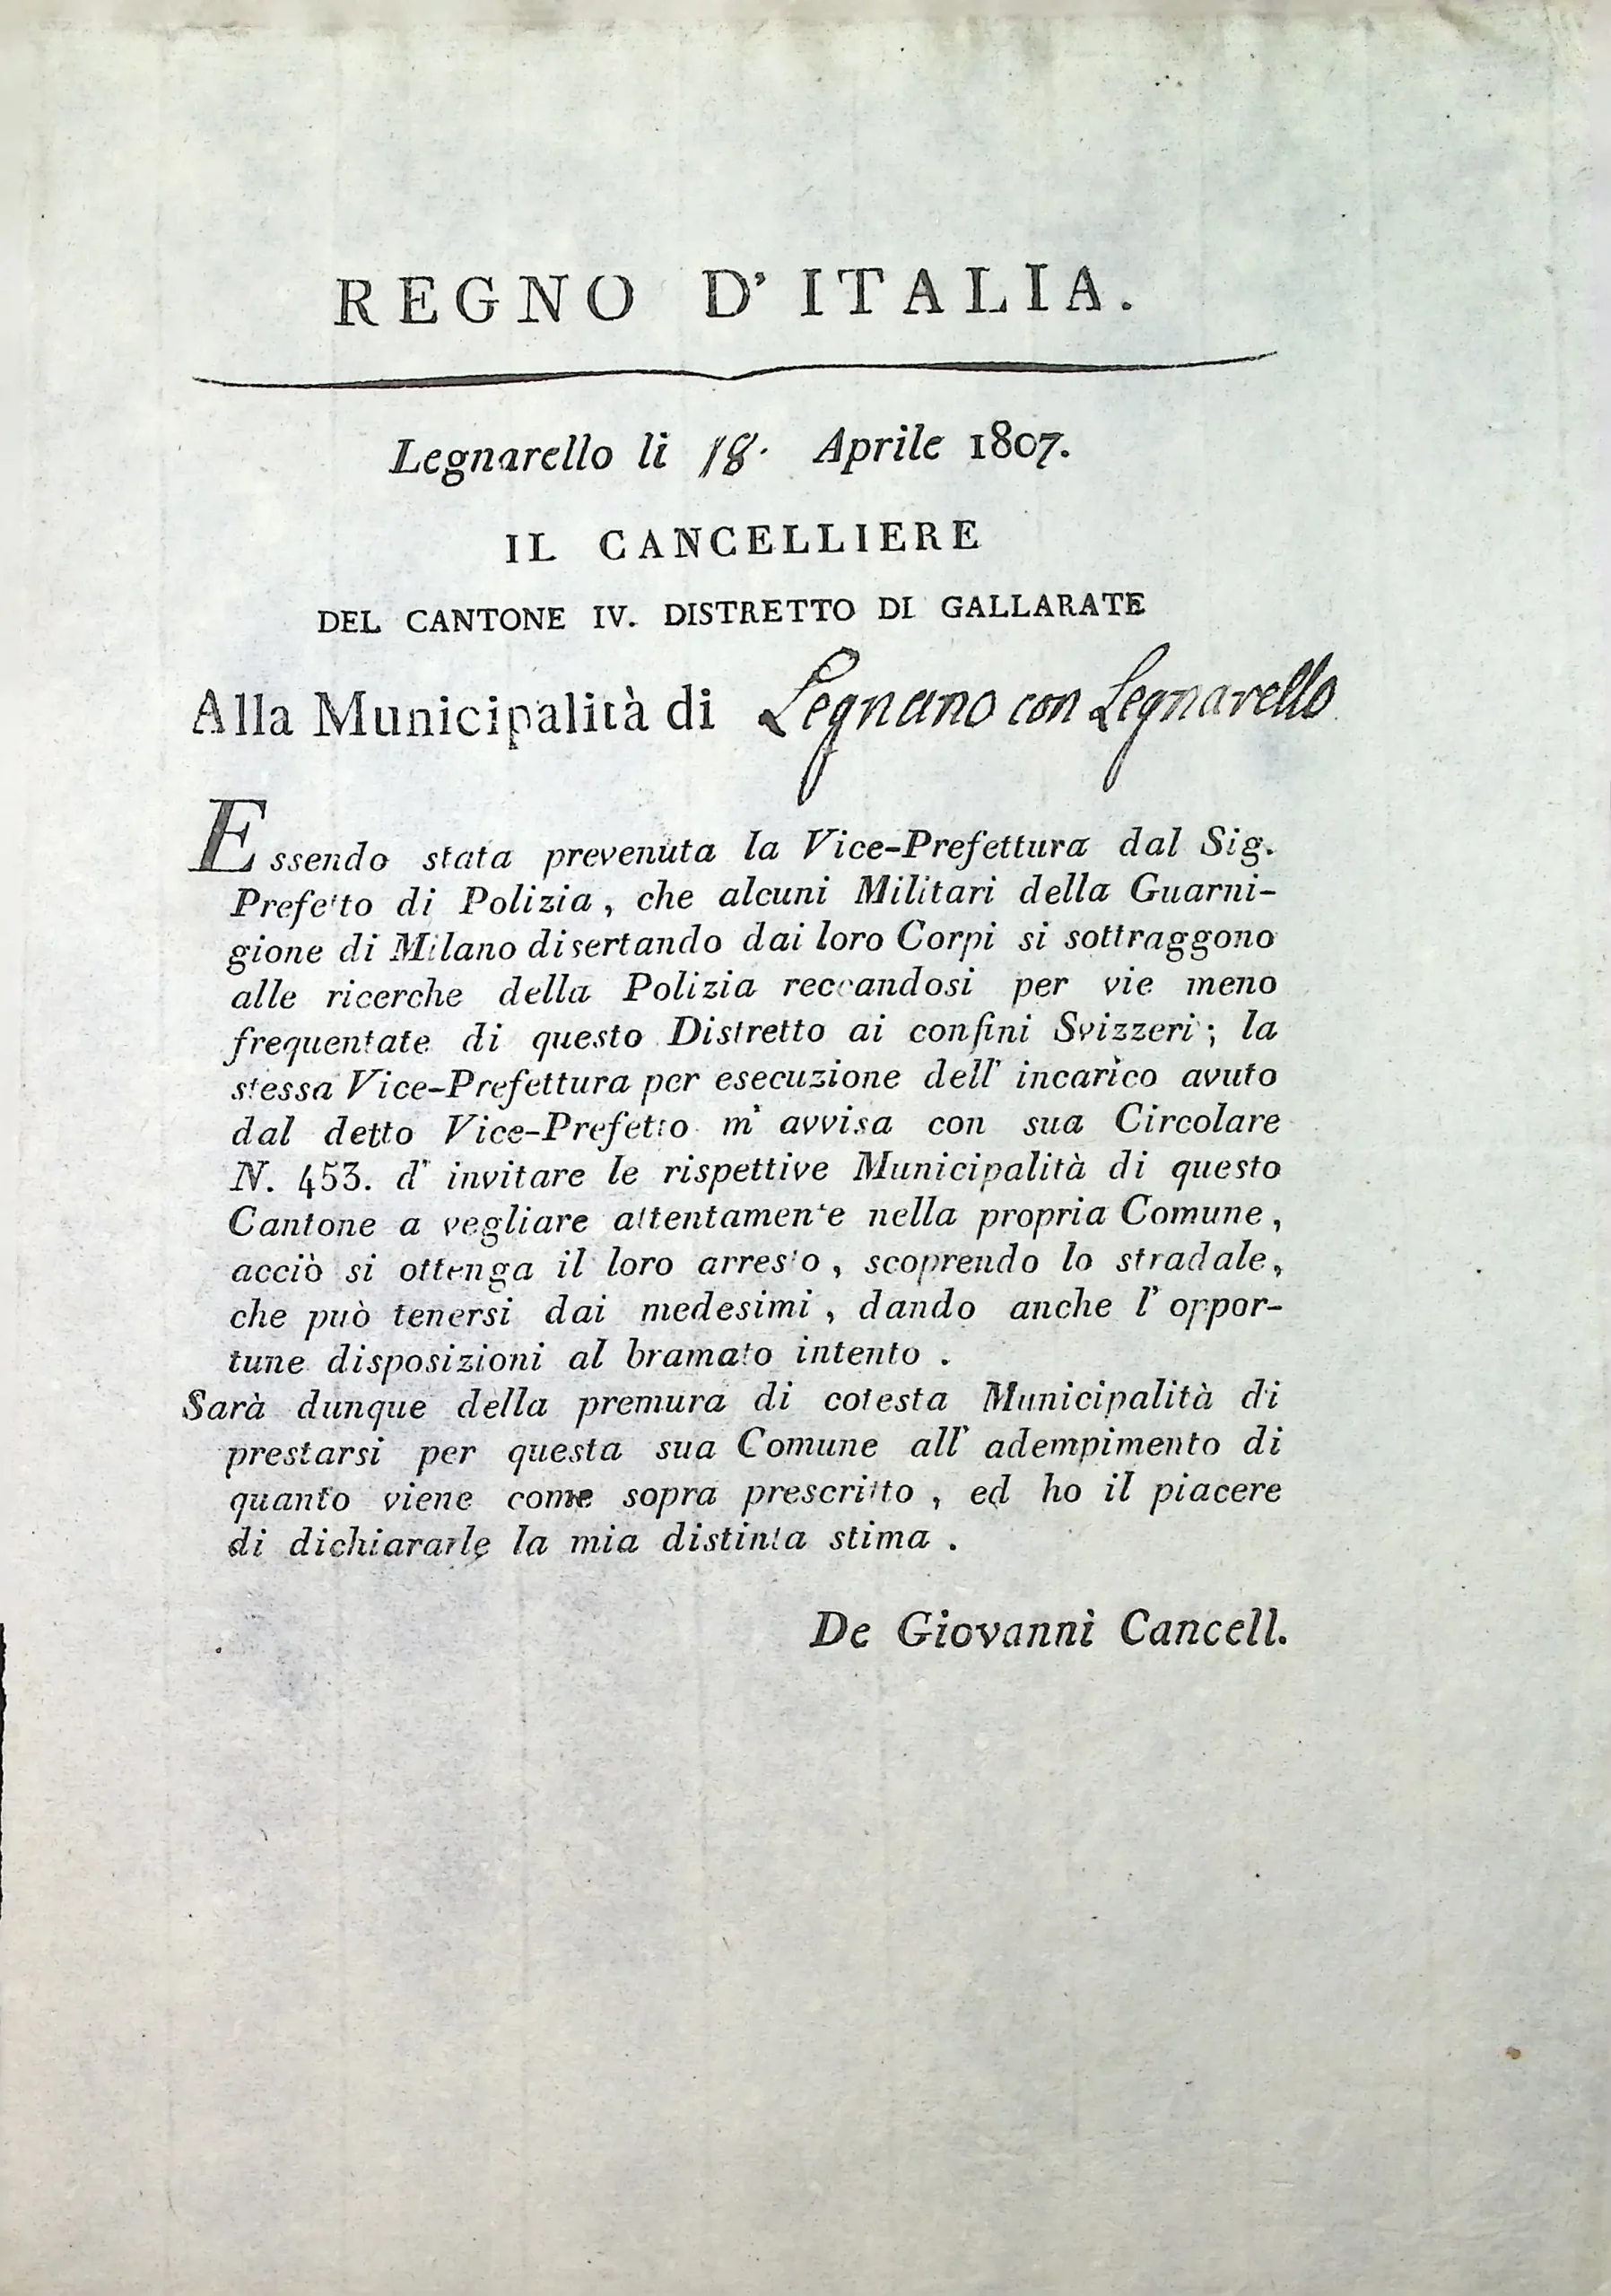 REGNO D'ITALIA.
Legnarello li 18. Aprile 1807.
IL CANCELLIERE
DEL CANTONE IV. DISTRETTO DI GALLARATE
Alla Municipalità di Legnano con Legnarello
Essendo stata prevenuta la Vice-Prefettura dal Sig.
Prefetto di Polizia, che alcuni Militari della Guarni-
gione di Milano disertando dai loro Corpi si sottraggono
alle ricerche della Polizia reccandosi per vie meno
frequentate di questo Distretto ai confini Svizzeri; la
stessa Vice-Prefettura per esecuzione dell' incarico avuto
dal detto Vice-Prefetto m' avvisa con sua Circolare
N. 453. d' invitare le rispettive Municipalità di questo
Cantone a vegliare attentamente nella propria Comune,
acciò si ottenga il loro arresto, scoprendo lo stradale,
che può tenersi dai medesimi, dando anche l' oppor-
tune disposizioni al bramato intento.
Sarà dunque della premura di cotesta Municipalità di
prestarsi per questa sua Comune all' adempimento di
quanto viene come sopra prescritto, ed ho il piacere
di dichiararle la mia distinta stima.
De Giovanni Cancell.